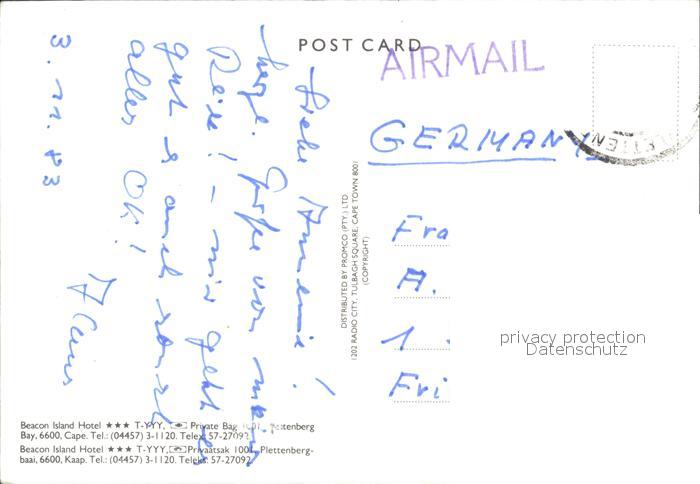 POST CARD
AIRMAIL
GERMANY
PLETTEN
Fra
A.
1.
Fri
privacy protection
Datenschutz
3.11.83
Liebe Annemie!
Grüße von meiner
Reise! – mir geht es
gut & auch sonst
alles OK!
Klaus
DISTRIBUTED BY PROMCO (PTY.) LTD
1202 RADIO CITY, TULBAGH SQUARE, CAPE TOWN 8001
(COPYRIGHT)
Beacon Island Hotel ★★★ T-YYY, Private Bag 1001, Plettenberg
Bay, 6600, Cape. Tel.: (04457) 3-1120. Telex: 57-27092
Beacon Island Hotel ★★★ T-YYY, Privaatsak 1001, Plettenberg-
baai, 6600, Kaap. Tel.: (04457) 3-1120. Teleks: 57-27092